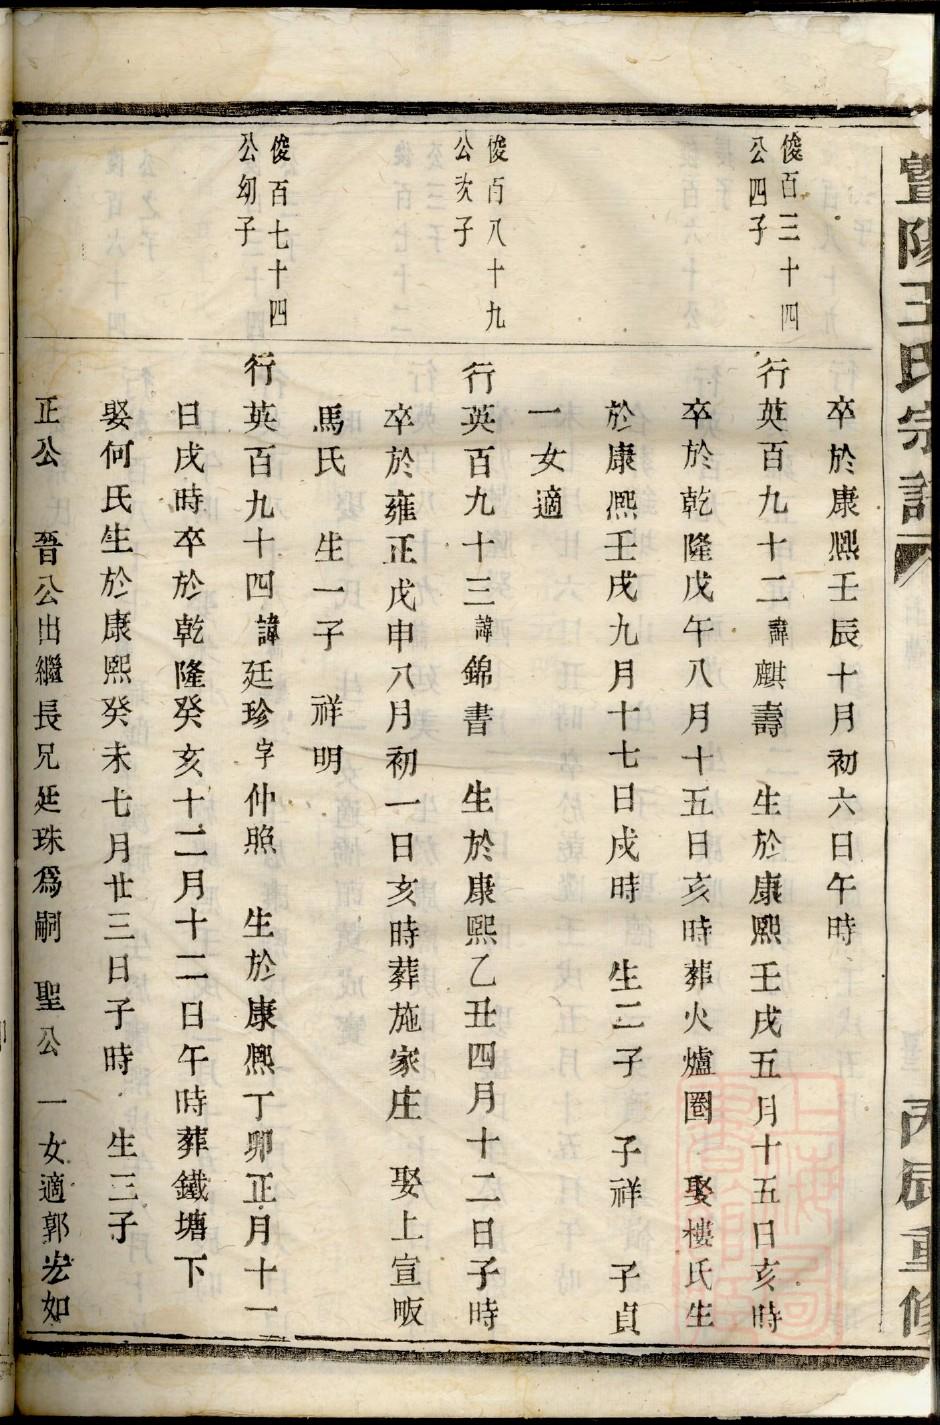 暨陽王氏宗譜
丙辰重修
卒於康熙壬辰十月初六日午時
俊百三十四
公四子
行英百九十二諱麒壽　生於康熙壬戌五月十五日亥時
卒於乾隆戊午八月十五日亥時葬火爐圈　娶樓氏生
於康熙壬戌九月十七日戌時　生二子　子祥　子貞
一女適
俊百八十九
公次子
行英百九十三諱錦書　生於康熙乙丑四月十二日子時
卒於雍正戊申八月初一日亥時葬施家庄　娶上宣畈
馬氏　生一子　祥明
俊百七十四
公幼子
行英百九十四諱廷珍字仲照　生於康熙丁卯正月十一
日戌時卒於乾隆癸亥十二月十二日午時葬鐵塘下
娶何氏生於康熙癸未七月廿三日子時　生三子
正公　晉公出繼長兄廷珠為嗣　聖公　一女適郭宏如